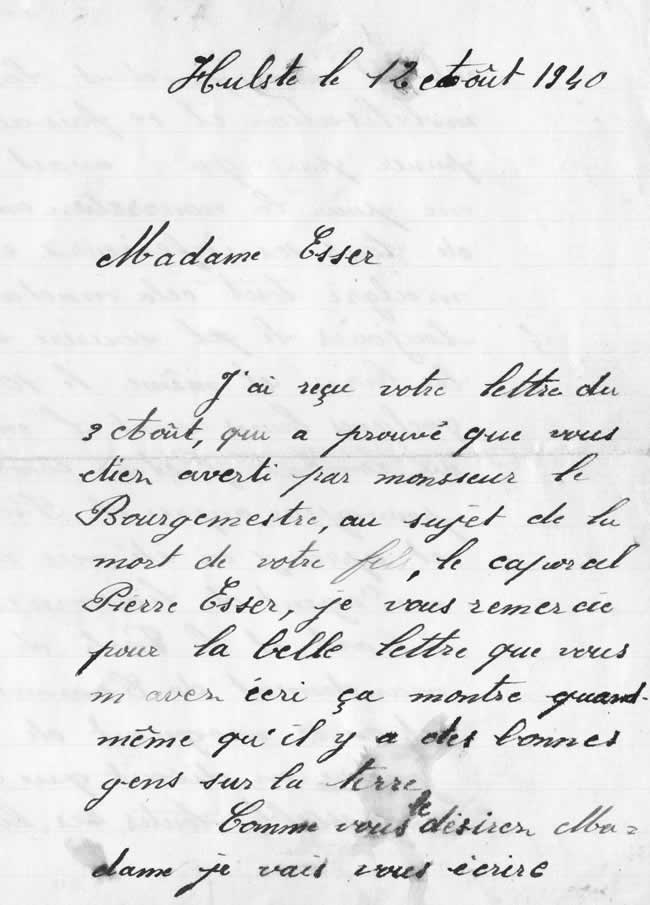 Hulste le 12 Août 1940
Madame Esser
J'ai reçu votre lettre du
3 Août, qui a prouvé que vous
etien averti par monsieur le
Bourgemestre, au sujet de la
mort de votre fils, le caporal
Pierre Esser, je vous remercie
pour la belle lettre que vous
m'aven écri ça montre quand-
même qu'il y a des bonnes
gens sur la terre,
Comme vous le désiren Ma=
dame je vais vous écrire